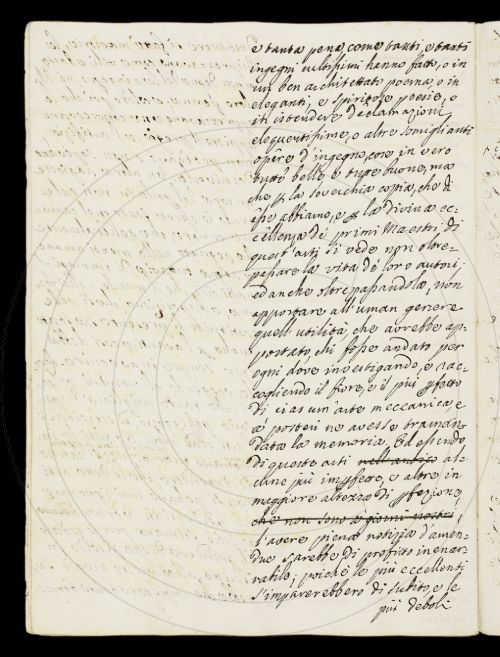 e tanta pena, come tanti, e tanti
ingegni cultissimi hanno fatto, o in
un ben architettato poema, o in
eleganti, e spiritose poesie, o
in istendere declamazioni
eloquentissime, o altre somiglianti
opere d'ingegno, cose in vero
tutte belle, e tutte buone, ma
che p la soverchia copia, che di
esse abbiamo, e p la divina ec-
cellenza de' primi Maestri, di
quest'arti si vede non oltre-
passare la vita de' loro autori;
ed anche oltrepassandola, non
apportare all'uman genere
quell'utilità, che avrebbe ap-
portato, chi fosse andato per
ogni dove investigando, e rac-
cogliendo il fiore, e il più pfetto
di ciascun'arte meccanica, e
a' posteri ne avesse traman-
data la memoria. Ed essendo
di queste arti nell'antico al-
cune più impfette, e altre in
maggiore altezza di pfezione,
che non sono a' giorni nostri,
l'avere piena notizia d'amen-
due sarebbe di profitto inenar-
rabile; poichè le più eccellenti
s'imparerebbero di subito, e le
più deboli